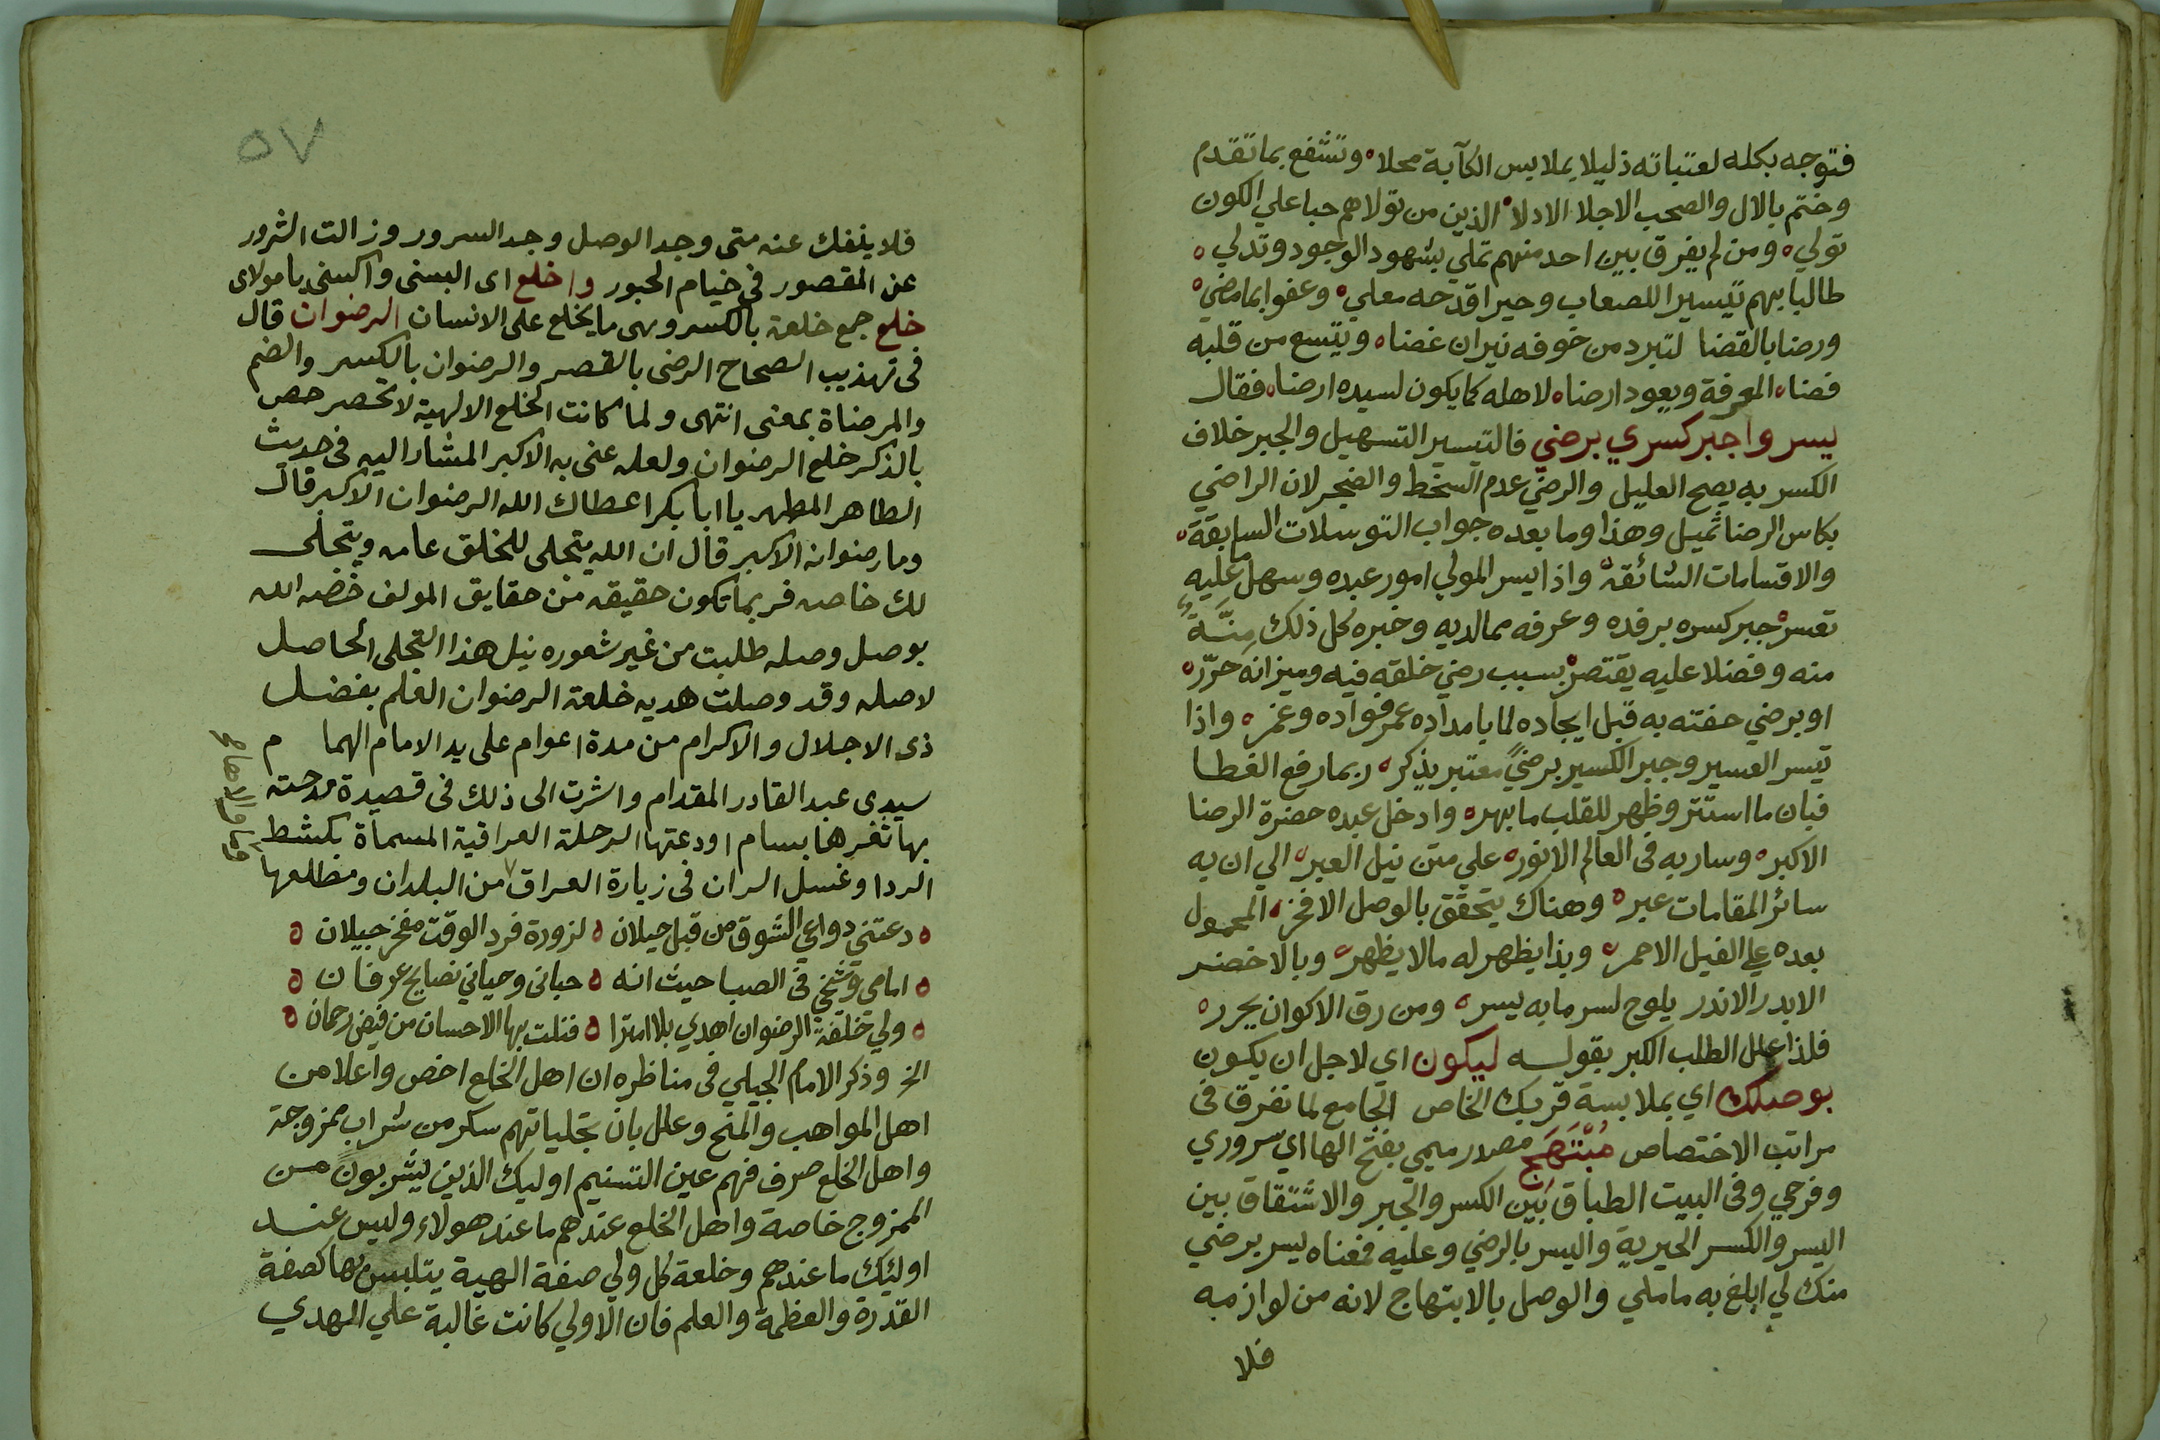 فتوجه بكله لعتباته ذليلا بملابس الكآبة محلا وتشفع بما تقدم
وختم بالال والصحب الاجلا الادلا الذين من تولاهم حبا علي الكون
تولي ومن لم يفرق بين احد منهم تملي بشهود الوجود وتدلي
طالبا بهم تيسير اللصعاب وحيرا قدحه معلي وعفوا بما مضي
ورضا بالقضا لتبرد من خوفه نيران غضاه ويتسع من قلبه
فضاء المعرفة ويعود ارضاه لاهله كما يكون لسيده ارضاه فقال
يسر واجبر كسري برضي فالتيسير التسهيل والجبر خلاف
الكسر به يصح العليل والرضي عدم السخط والضجر لان الراضي
بكاس الرضا ثميل وهذا وما بعده جواب التوسلات السابقة
والاقسامات الشائقة واذا يسر المولي امور عبده وسهل ما عليه
تعسر جبر كسره برفده وعرفه مما لديه وخبره كل ذلك مِنَّةً
منه وفضلا عليه يقتصر بسبب رضي خلقه فيه وميزانه حرّر
او برضي حفته به قبل ايجاده لما بامداده عمر فواده وغمر واذا
تيسر العسير وجبر الكسير برضيً معتبر يذكر ربما رفع الغطا
فبان ما استتر وظهر للقلب ما بهر وادخل عبده حضرة الرضا
الاكبر وسار به في العالم الانور علي متن نيل العبر الي ان به
سائر المقامات عبر وهناك يتحقق بالوصل الافخر المحمول
بعده علي الفيل الاحمر وبذا يظهر له مالا يظهر وبالاخضر
الابدر الاندر يلوح لسر ما به يسر ومن رق الاكوان يحرر
فلذا علل الطلب الكبر بقوله ليكون اي لاجل ان يكون
بوصلك اي بملابسة قربك الخاص الجامع لما تفرق في
مراتب الاختصاص مُبْتَهَج مصدر ميمي بفتح الها اي سروري
وفرحي وفي البيت الطباق بين الكسر والجبر والاشتقاق بين
اليسر والكسر الحيرية واليسر بالرضي وعليه فمعناه يسر برضي
منك لي ابلغ به ماملي والوصل بالابتهاج لانه من لوازمه
فلا
٥٧
فلا ينفك عنه متى وجد الوصل وجد السرور وزالت الشرور
عن المقصور في خيام الحبور واخلع اى البسنى واكسنى يا مولاى
خلع جمع خلعة بالكسر وهى ما يخلع على الانسان الرضوان قال
فى تهذيب الصحاح الرضى بالقصر والرضوان بالكسر والضم
والمرضاة بمعنى انتهى ولما كانت الخلع الالهية لا تحصر حض
بالذكر خلع الرضوان ولعله عنى به الاكبر المشار اليه فى حديث
الطاهر المطهر يا ابا بكر اعطاك الله الرضوان الاكبر قال
وما رضوانه الاكبر قال ان الله يتجلى للخلق عامه ويتجلى
لك خاصه فربما تكون حقيقه من حقايق المولف خصه الله
بوصل وصله طلبت من غير شعوره نيل هذا التجلى الحاصل
لاصله وقد وصلت هديه خلعة الرضوان العلم بفضل
ذى الاجلال والاكرام من مدة اعوام على يد الامام الهما م
سيدى عبد القادر المقدام واشرت الى ذلك فى قصيدة مدحته
بها ثغرها بسام اودعتها الرحلة العراقية المسماة بكشط
الردا وغسل الران فى زيارة العراق من البلدان ومطلعها
دعتني دواعي الشوق من قبل جيلان لزورة فرد الوقت مفخر جيلان
امامي وشيخي في الصبا حيث انه حباني وحياني نصايح عرفان
ولي خلعة الرضوان اهدي بلا امترا فنلت بها الاحسان من فيض رحمان
الخ وذكر الامام الجيلي في مناظره ان اهل الخلع اخص واعلا من
اهل المواهب والمنح وعلل بان تجلياتهم سكر من شراب ممزوجة
واهل الخلع صرف فهم عين التسنيم اوليك الذين يشربون من
الممزوج خاصة واهل الخلع عندهم ما عند هولاء وليس عند
اوليك ما عندهم وخلعة كل ولي صفة الهية يتلبس بها كصفة
القدرة والعظمة والعلم فان الاولي كانت غالبة علي المهدي